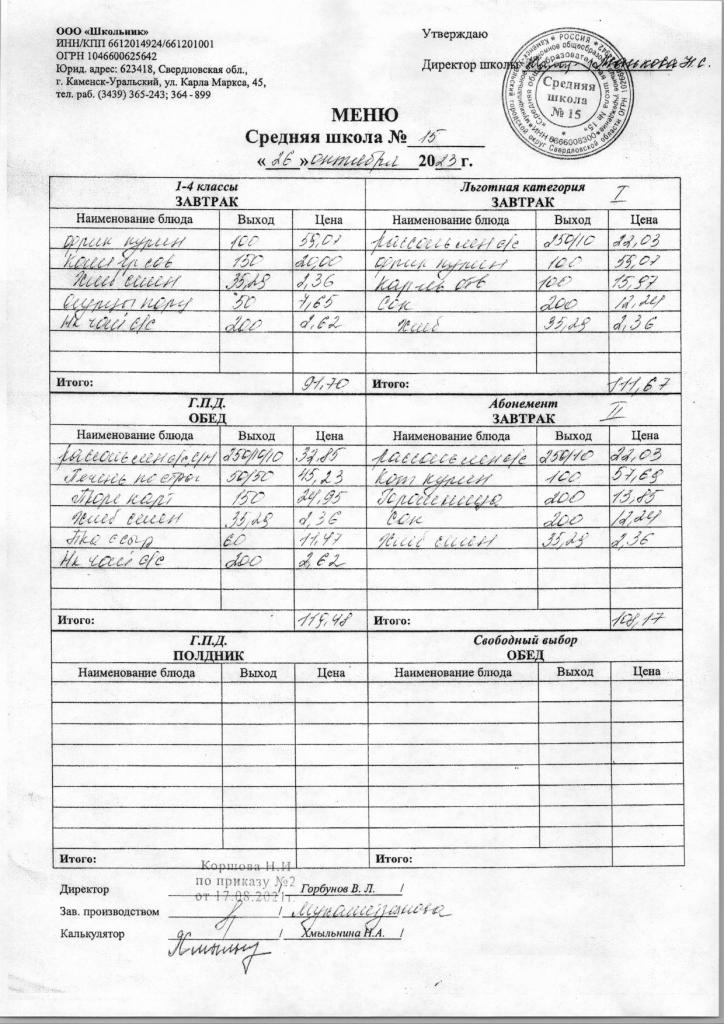 ООО «Школьник»
ИНН/КПП 6612014924/661201001
ОГРН 1046600625642
Юрид. адрес: 623418, Свердловская обл.,
г. Каменск-Уральский, ул. Карла Маркса, 45,
тел. раб. (3439) 365-243; 364 - 899
Утверждаю
Директор школы
Средняя
школа
№ 15
МЕНЮ
Средняя школа № 15
« 26 » октября 2023 г.
1-4 классы
ЗАВТРАК
Наименование блюда Выход Цена
фрик курин 100 59,07
150 20,00
Хлеб пшен 35,29 2,36
Огурцы пору 50 7,65
Нк чай б/с 200 2,62
Итого: 91,70
Льготная категория I
ЗАВТРАК
Наименование блюда Выход Цена
рассоль лен б/с 250/10 22,03
фрик курин 100 59,07
Картоф отв 100 15,97
Сок 200 12,24
Хлеб 35,29 2,36
Итого: 111,67
Г.П.Д.
ОБЕД
Наименование блюда Выход Цена
250/10/10 32,85
Печень по строг 50/50 45,23
Пюре карт 150 24,95
Хлеб пшен 35,29 2,36
с сыр 60 11,47
Нк чай б/с 200 2,62
Итого: 119,48
Абонемент II
ЗАВТРАК
Наименование блюда Выход Цена
рассоль лен б/с 250/10 22,03
Кот курин 100 57,69
200 13,85
Сок 200 12,24
Хлеб пшен 35,29 2,36
Итого: 108,17
Г.П.Д.
ПОЛДНИК
Наименование блюда Выход Цена
Итого:
Свободный выбор
ОБЕД
Наименование блюда Выход Цена
Итого:
Коршова Н.И
по приказу №2
от 17.08.2021г.
Директор / Горбунов В. Л. /
Зав. производством / /
Калькулятор / Хмыльнина Н.А. /